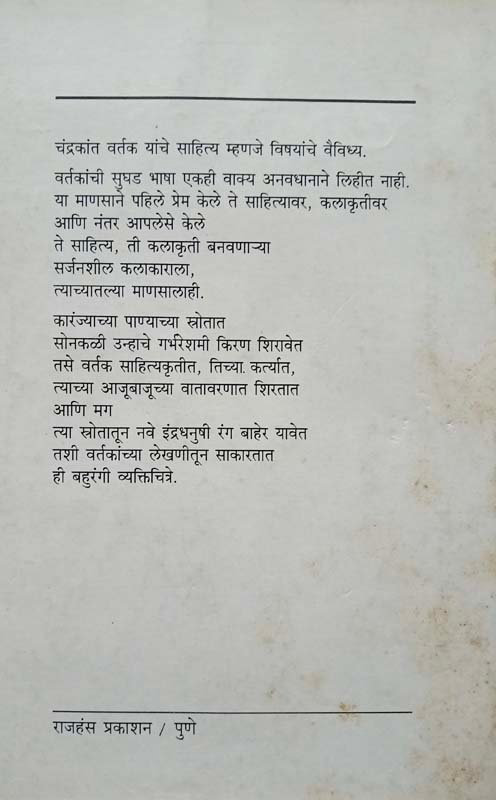 चंद्रकांत वर्तक यांचे साहित्य म्हणजे विषयांचे वैविध्य.
वर्तकांची सुघड भाषा एकही वाक्य अनवधानाने लिहीत नाही.
या माणसाने पहिले प्रेम केले ते साहित्यावर, कलाकृतीवर
आणि नंतर आपलेसे केले
ते साहित्य, ती कलाकृती बनवणाऱ्या
सर्जनशील कलाकाराला,
त्याच्यातल्या माणसालाही.
कारंज्याच्या पाण्याच्या स्रोतात
सोनकळी उन्हाचे गर्भरेशमी किरण शिरावेत
तसे वर्तक साहित्यकृतीत, तिच्या कर्त्यात,
त्याच्या आजूबाजूच्या वातावरणात शिरतात
आणि मग
त्या स्रोतातून नवे इंद्रधनुषी रंग बाहेर यावेत
तशी वर्तकांच्या लेखणीतून साकारतात
ही बहुरंगी व्यक्तिचित्रे.
राजहंस प्रकाशन / पुणे